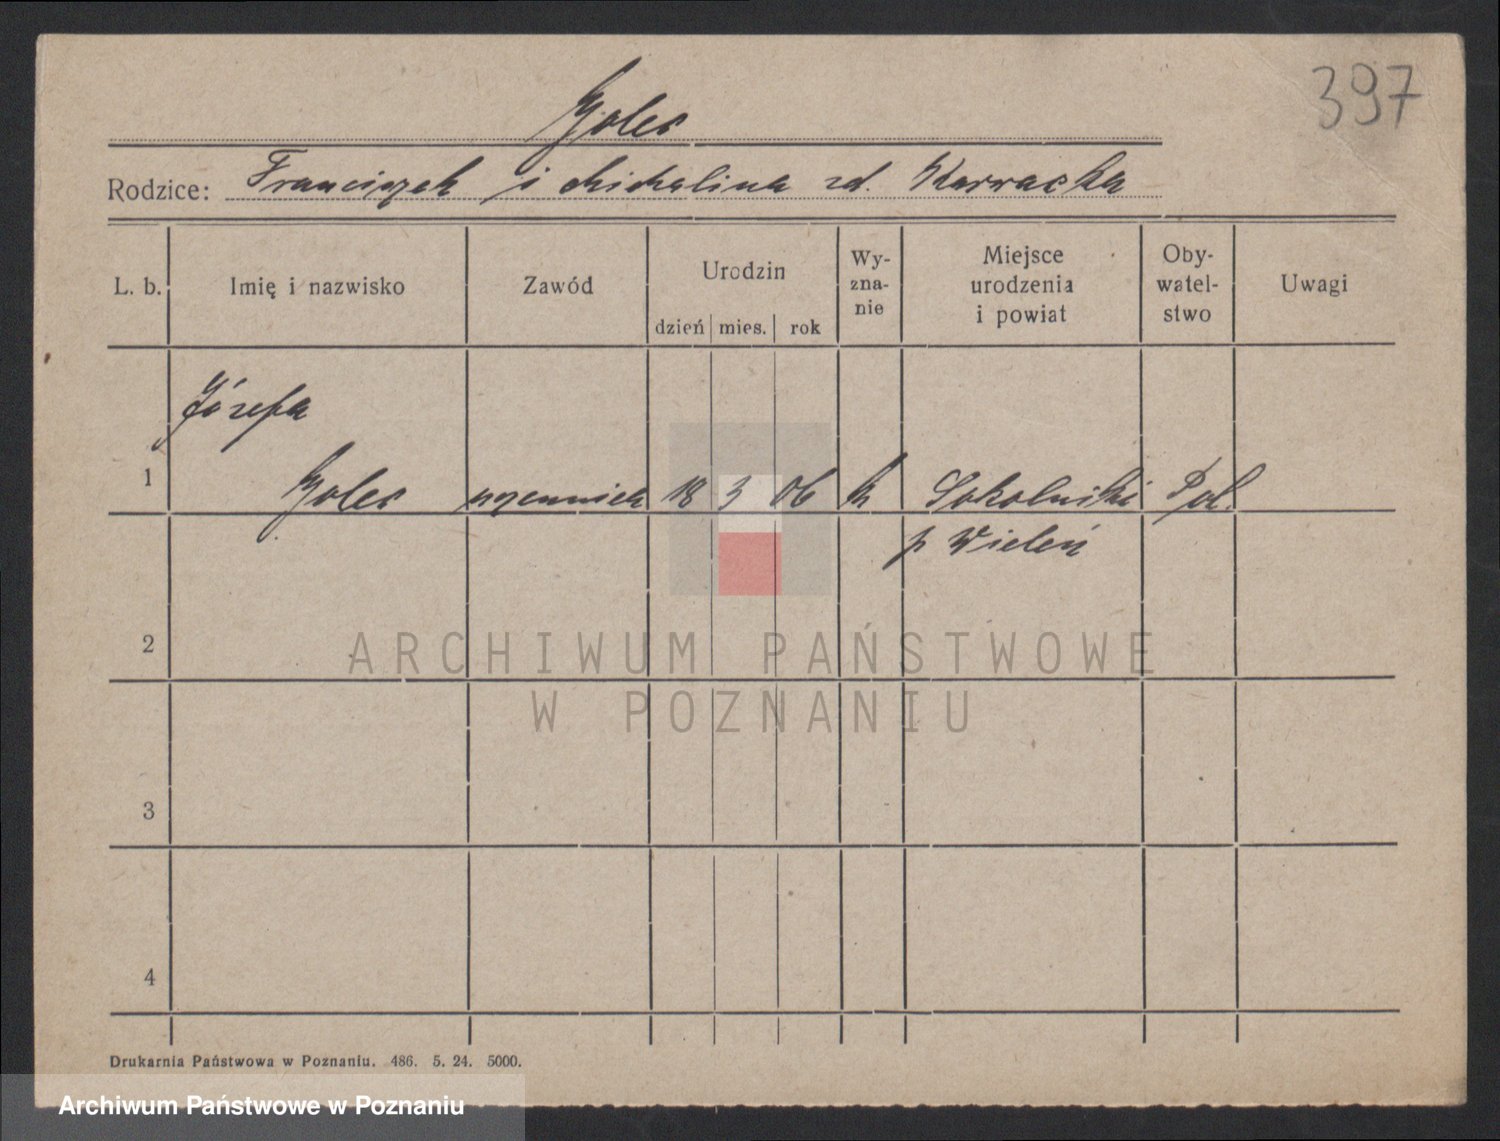 397
Golec
Rodzice: Franciszek i Michalina zd. Karracka
L. b. Imię i nazwisko Zawód Urodzin dzień mies. rok Wy- zna- nie Miejsce urodzenia i powiat Oby- watel- stwo Uwagi
Józefa
1 Golec uczennica 18 3 06 k Sokolniki Pol.
p Wieleń
2
ARCHIWUM PAŃSTWOWE
W POZNANIU
3
4
Drukarnia Państwowa w Poznaniu. 486. 5. 24. 5000.
Archiwum Państwowe w Poznaniu